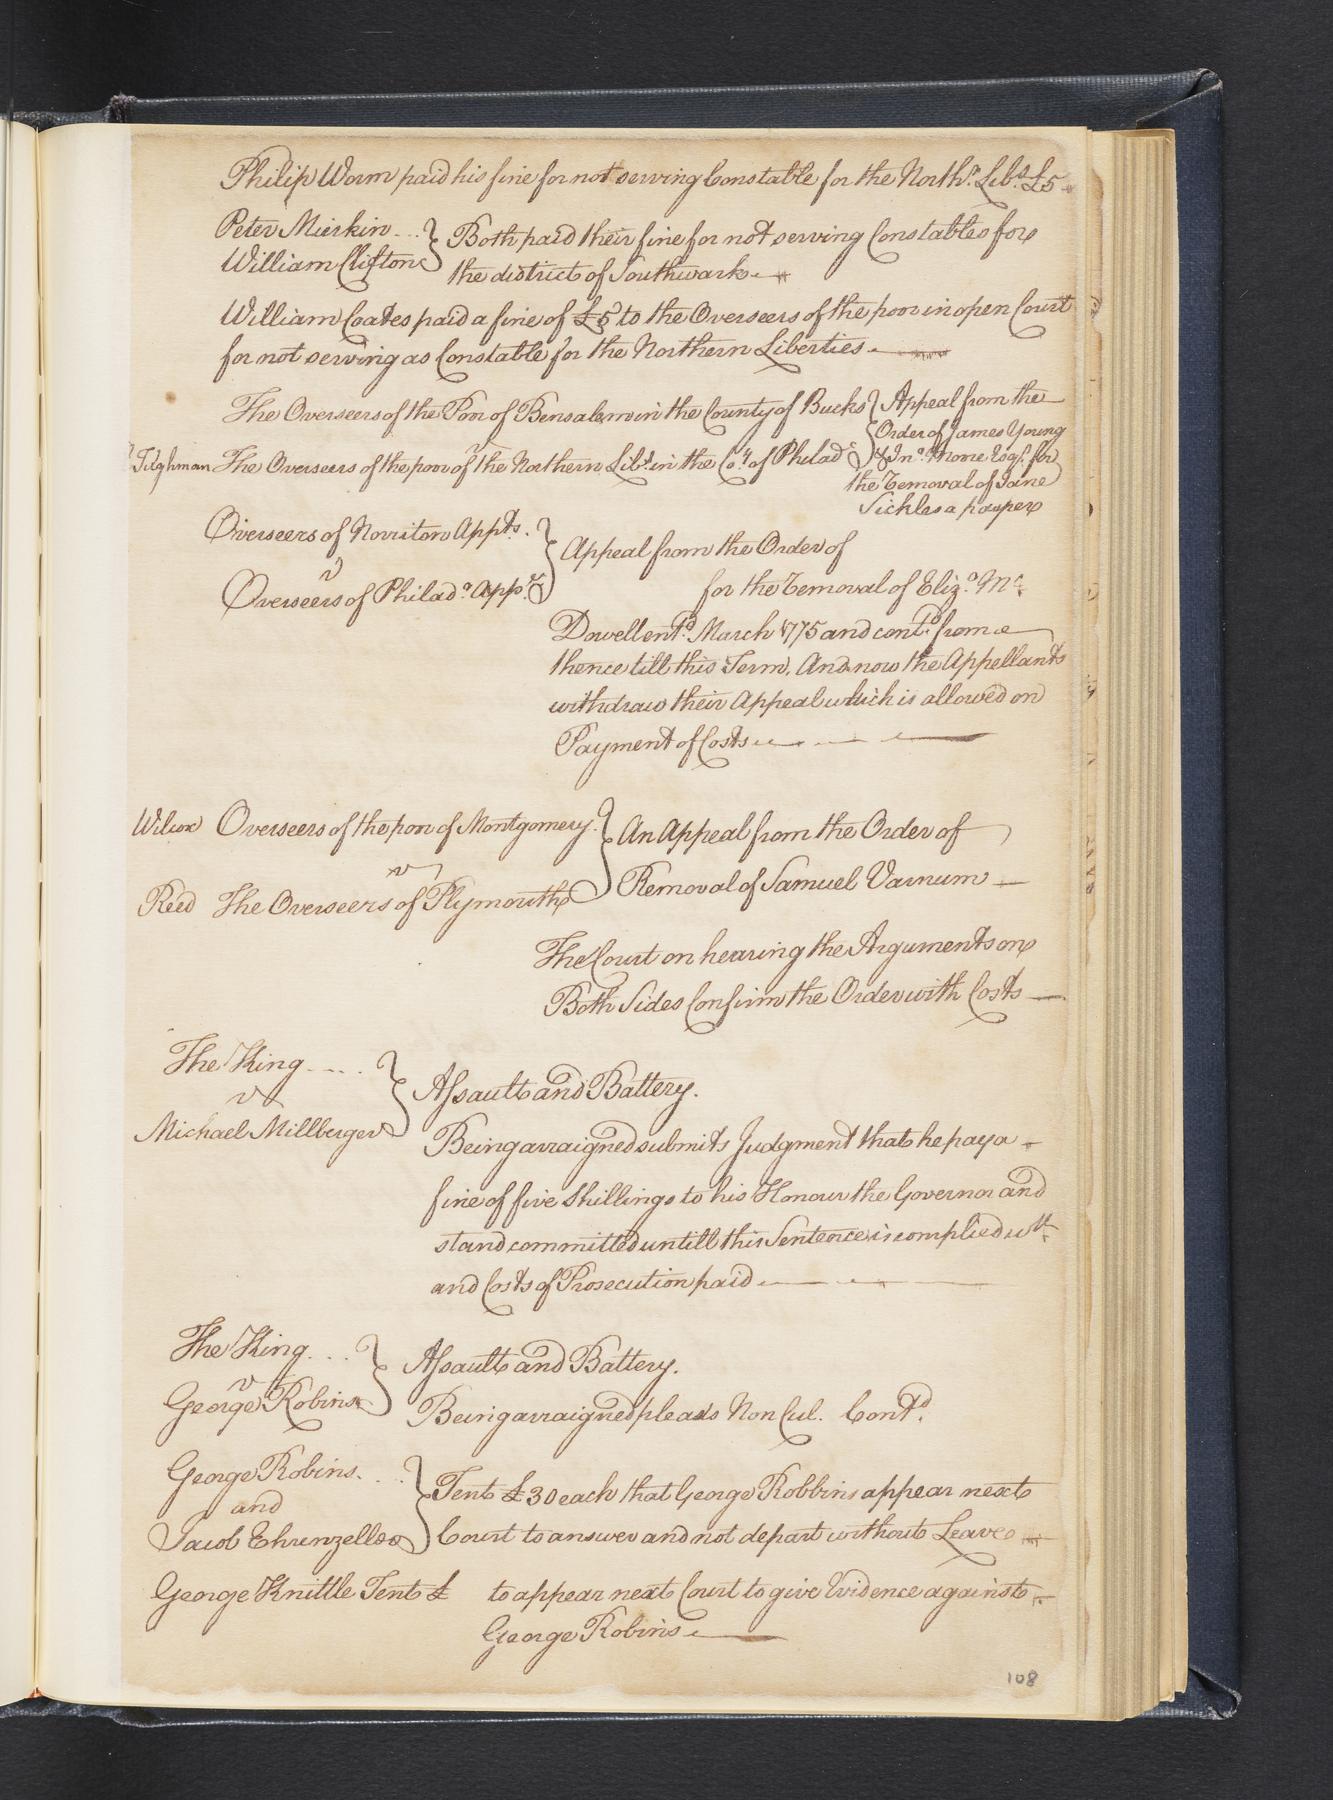 Philip Worm paid his fine for not serving Constable for the North.ⁿ Lib.ˢ £5
Peter Mierkin
William Clifton
Both paid their fine for not serving Constables for
the district of Southwark
William Coates paid a fine of £5 to the Overseers of the poor in open Court
for not serving as Constable for the Northern Liberties.
The Overseers of the Poor of Bensalem in the County of Bucks
v
Tilghman The Overseers of the poor of the Northern Lib.ˢ in the Co.ʸ of Philad.ᵃ
Appeal from the
Order of James Young
& Jn.º Esq.ʳ for
the Removal of Jane
Sickles a pauper
Overseers of Norriton App.ᵗˢ
v
Overseers of Philad.ᵃ App.ᵉᵉ
Appeal from the Order of
for the Removal of Eliz.ᵃ M.ᶜ
Dowell ent.ᵈ March 1775 and cont.ᵈ from
thence till this Term. And now the Appellants
withdraw their Appeal which is allowed on
Payment of Costs
Wilcox Overseers of the poor of Montgomery
v
Reed The Overseers of Plymouth
An Appeal from the Order of
Removal of Samuel Varnum
The Court on hearing the Arguments on
Both Sides Confirm the Order with Costs
The King
v
Michael Millberger
Assault and Battery.
Being arraigned submits Judgment that he pay a
fine of five Shillings to his Honour the Governor and
stand committed untill this Sentence is complied wᵗʰ
and Costs of Prosecution paid
The King
v
George Robins
Assault and Battery.
Being arraigned pleads Non Cul. Cont.ᵈ
George Robins
and
Jacob Ehrenzeller
Tent £30 each that George Robbins appear next
Court to answer and not depart without Leave
George Knittle Tent £ to appear next Court to give Evidence against
George Robins
108